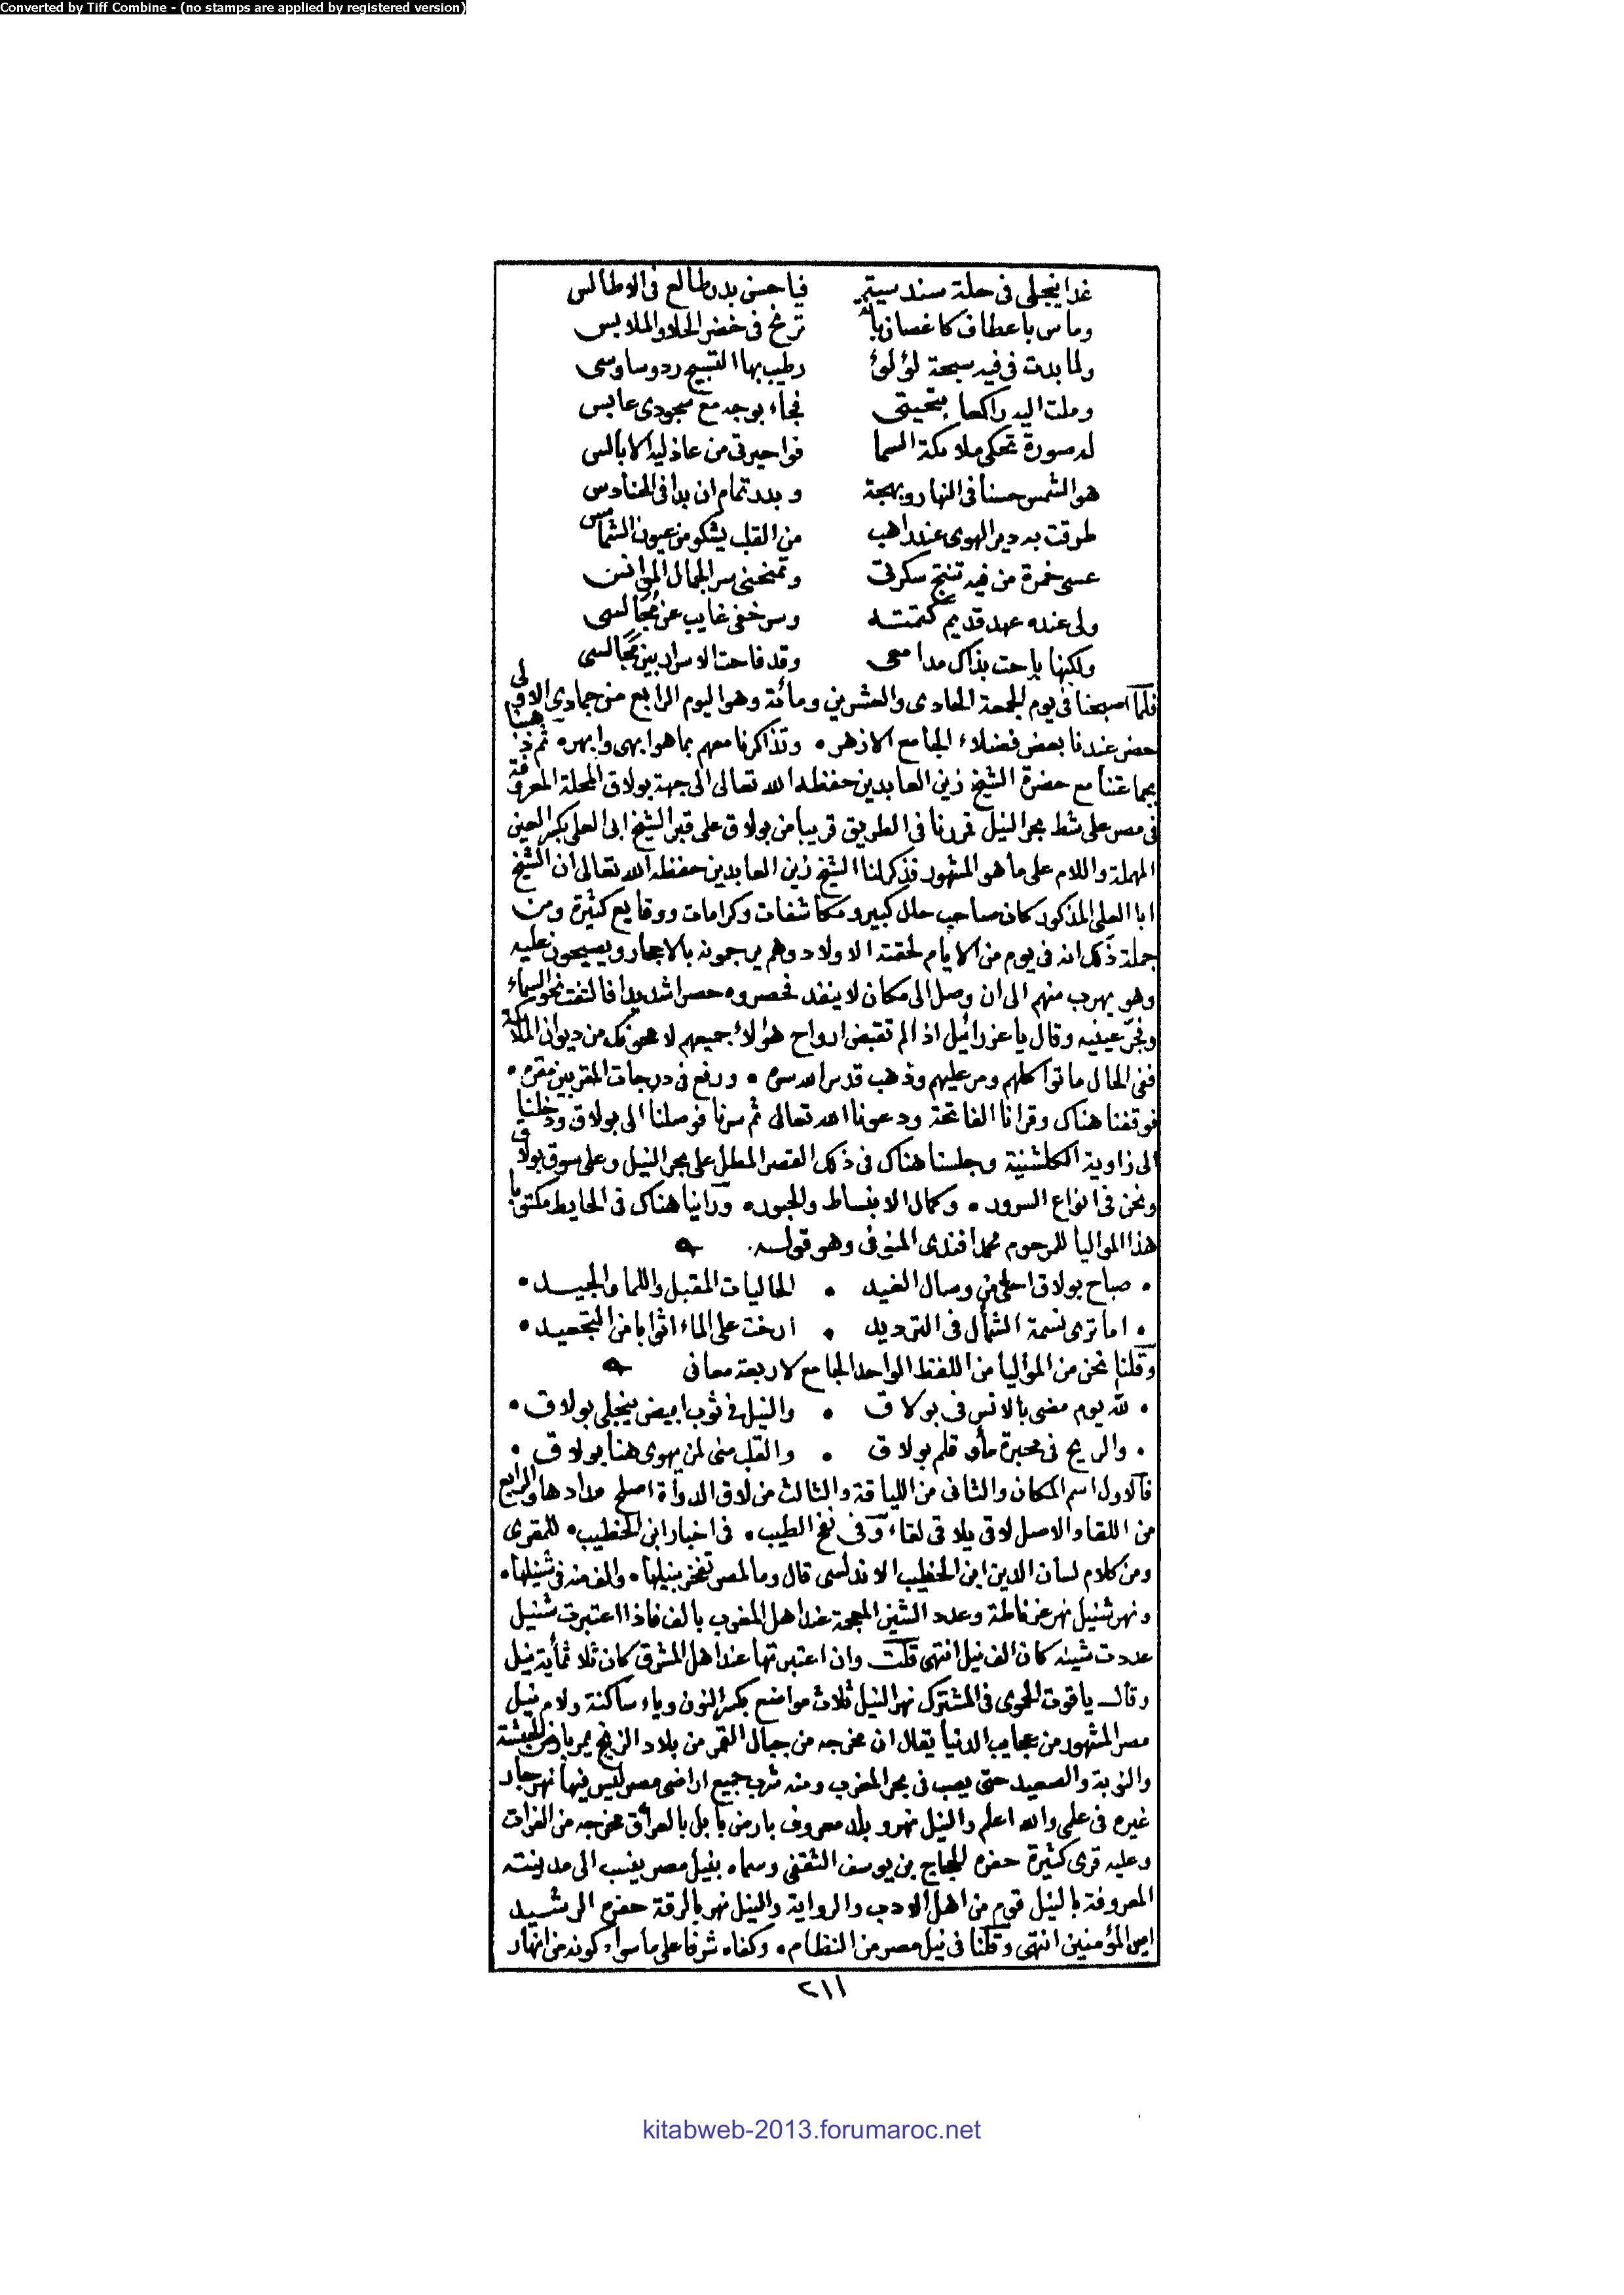 Converted by Tiff Combine - (no stamps are applied by registered version)
غدا ينجلى فى حلة سندسية فيا حسن بدر طالع فى الاطالس
وماس باعطاف كاغصان بانة ترنح فى خضر الحلا والملابس
ولما بدت فى فيه سبحة لؤلؤ رطيب بها التسبيح زد وساوسى
وملت اليه راكعا بتحيتى فجاء بوجه مع سجودى عابس
له صورة تحكى ملائكة السما فواحيرتى من عاذليه الابالس
هو الشمس حسنا فى النهار وبهجة وبدر تمام ان بدا فى الحنادس
طرقت به دير الهوى عند راهب من القلب يشكو من عيون الشمامس
عسى خمرة من فيه تنتج سكرتى وتمنحنى سر الجمال الموانس
ولى عنده عهد قديم كتمته وسر خفى غايب عن مجالسى
ولكنها باحت بذاك مدامعى وقد فاحت الاسرار بين مجالسى
فلما اصبحنا فى يوم الجمعة الحادى والعشرين ومائة وهو اليوم الرابع من جمادى الاولى
حضر عندنا بعض فضلاء الجامع الازهر • وتذاكرنا معهم بما هو ابهى وابهر • ثم ذهبنا
بجماعتنا مع حضرة الشيخ زين العابدين حفظه الله تعالى الى جهة بولاق المحلة المعروفة
فى مصر على شط بحر النيل فمررنا فى الطريق قريبا من بولاق على قبر الشيخ ابى العلى بكسر العين
المهملة واللام على ما هو المشهور فذكر لنا الشيخ زين العابدين حفظه الله تعالى ان الشيخ
ابا العلى المذكور كان صاحب حال كبير ومكاشفات وكرامات ووقايع كثيرة ومن
جملة ذلك انه فى يوم من الايام لحقته الاولاد وهم يرجمونه بالاحجار ويصيحون عليه
وهو يهرب منهم الى ان وصل الى مكان لا ينفذ فحصروه حصرا شديدا فالتفت نحو السماء
وفجر عينيه وقال يا عزرائيل اذا لم تقبض ارواح هؤلاء جميعهم لامحونك من ديوان الملائكة
ففى الحال ماتوا كلهم ومر عليهم وذهب قدس الله سره • ورفع فى درجات المقربين مقره •
فوقفنا هناك وقرانا الفاتحة ودعونا الله تعالى ثم سرنا فوصلنا الى بولاق ودخلنا
الى زاوية الكلشنية وجلسنا هناك فى ذلك القصر المطل على بحر النيل وعلى سوق بولاق
ونحن فى انواع السرور • وكمال الانبساط والحبور • وراينا هناك فى الحايط مكتوبا
هذا المواليا للمرحوم محمد افندى المنوفى وهو قوله
• صباح بولاق احلى من وصال الغيد • الحاليات المقبل واللما والجيد •
• اما ترى نسمة الشمال فى الترديد • ارخت على الماء اثوابا من التجعيد •
وقلنا نحن من المواليا من اللفظ الواحد الجامع لاربعة معانى
• لله يوم مضى بالانس فى بولاق • والنيل فى ثوب ابيض ينجلى بولاق •
• والريح فى محبرة ماو قلم بولاق • والقلب منى لمن يهوى هنا بولاق •
فالاول اسم المكان والثانى من اللياقة والثالث من لاق الدواة اصلح مدادها والرابع
من اللقا والاصل لاقى يلاقى لقاء وفى نفح الطيب • فى اخبار ابن الخطيب • للمقرى
ومن كلام لسان الدين ابن الخطيب الاندلسى قال وما لمصر تفخر بنيلها • والف منه فى شنيلها •
ونهر شنيل نهر غرناطة وعدد الشين المعجمة عند اهل المغرب بالف فاذا اعتبرت شنيل
عددت شينه كان الف نيل انتهى قلت وان اعتبرتها عند اهل المشرق كان ثلاثمأية نيل
وقال ياقوت الحموى فى المشترك نهر النيل ثلاث مواضع بكسر النون وياء ساكنة ولام نيل
مصر المشهور من عجايب الدنيا يقال ان مخرجه من جبال القمر من بلاد الزنج يمر بارض الحبشة
والنوبة والصعيد حتى يصب فى بحر المغرب ومنه شرب جميع اراضى مصر ليس فيها نهر جار
غيره فى علمى والله اعلم والنيل نهر وبلد معروف بارض بابل بالعراق مخرجه من الفرات
وعليه قرى كثيرة حفره الحجاج بن يوسف الثقفى وسماه بنيل مصر ينسب الى مدينته
المعروفة بالنيل قوم من اهل الادب والرواية والنيل نهر بالرقة حفره الرشيد
امير المؤمنين انتهى وقلنا فى نيل مصر من النظام • وكفاه شرفا على ما سواه كونه من انهار
٢١١
kitabweb-2013.forumaroc.net